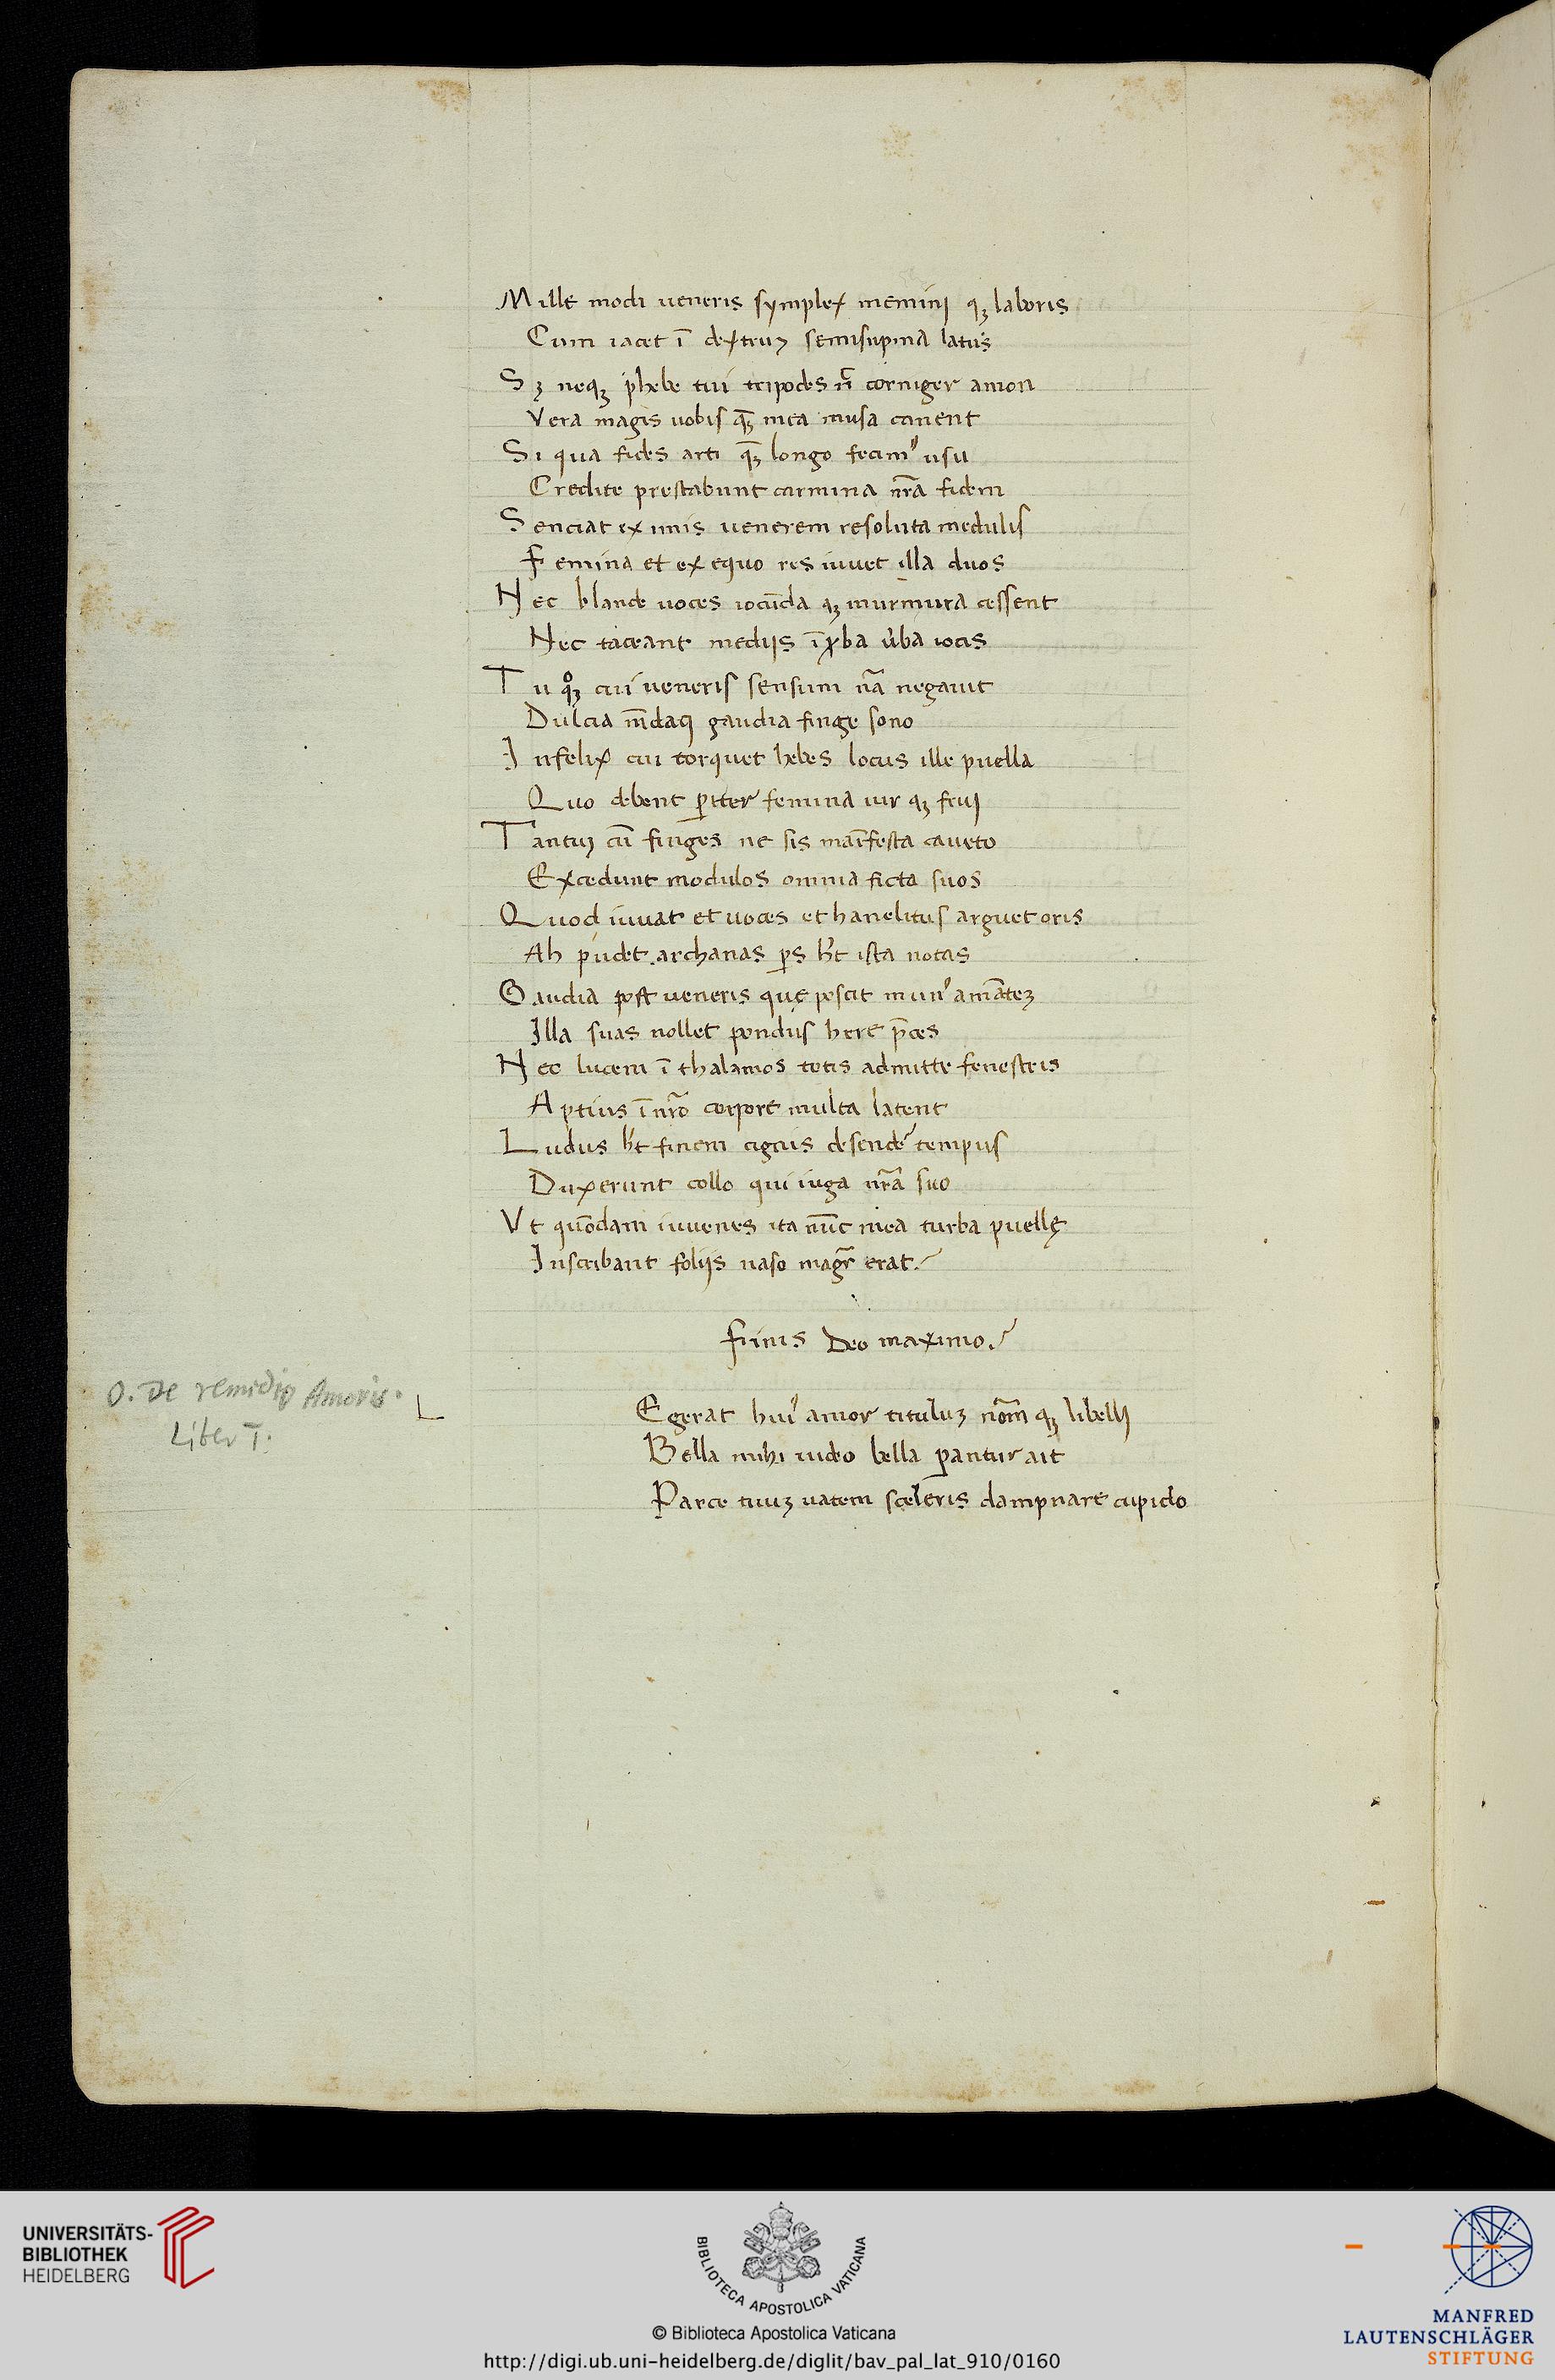 Mille modi ueneris symplex meminj qꝫ laboris
Cum iacet ī dextruꝫ semisupina latus
Sꝫ neqꝫ phebe tui tripodes nͨ corniger amon
Vera magis uobis qᷓꝫ mea musa canent
Si qua fides arti qᷓꝫ longo fecimꝰ usu
Credite prestabunt carmina nr̄a fidem
Senciat ex imis uenerem resoluta medulis
Femina et ex equo res iuuet illa duos
Nec blande uoces iocūda qꝫ murmura cessent
Nec taceant medijs īproba ùba iocis
Tu qͦꝫ cui ueneris sensum nā negauit
Dulcia mēdaci gaudia finge sono
Infelix cui torquet hebes locus ille puella
Quo debent pariter femina uir qꝫ frui
Tantuꝫ cū finges ne sis maīfesta caueto
Excedunt modulos omnia ficta suos
Quod iuuat et uoces et hanelitus arguet oris
Ah pudet archanas ꝑs ht̄ ista notas
Gaudia post ueneris quę poscit munꝰ amāteꝫ
Illa suas nollet pondus here p̄ces
Nec lucem ī thalamos totis admitte fenestris
Aptius ī nr̄o corpore multa latent
Ludus ht̄ finem cignis desendē tempus
Duxerunt collo qui iuga nr̄a suo
Vt quōdam iuuenes ita nūc mea turba puellę
Inscribant folijs naso magr̄ erat.
Finis Deo maximo.
O. De remidijs Amoris.
Liber I.
Egerat huiꝰ amor tituluꝫ nōm qꝫ libellj
Bella mihi uideo bella ꝑantur ait
Parce tuuꝫ uatem sceleris dampnare cupido
UNIVERSITÄTS-
BIBLIOTHEK
HEIDELBERG
BIBLIOTECA APOSTOLICA VATICANA
© Biblioteca Apostolica Vaticana
http://digi.ub.uni-heidelberg.de/diglit/bav_pal_lat_910/0160
MANFRED
LAUTENSCHLÄGER
STIFTUNG